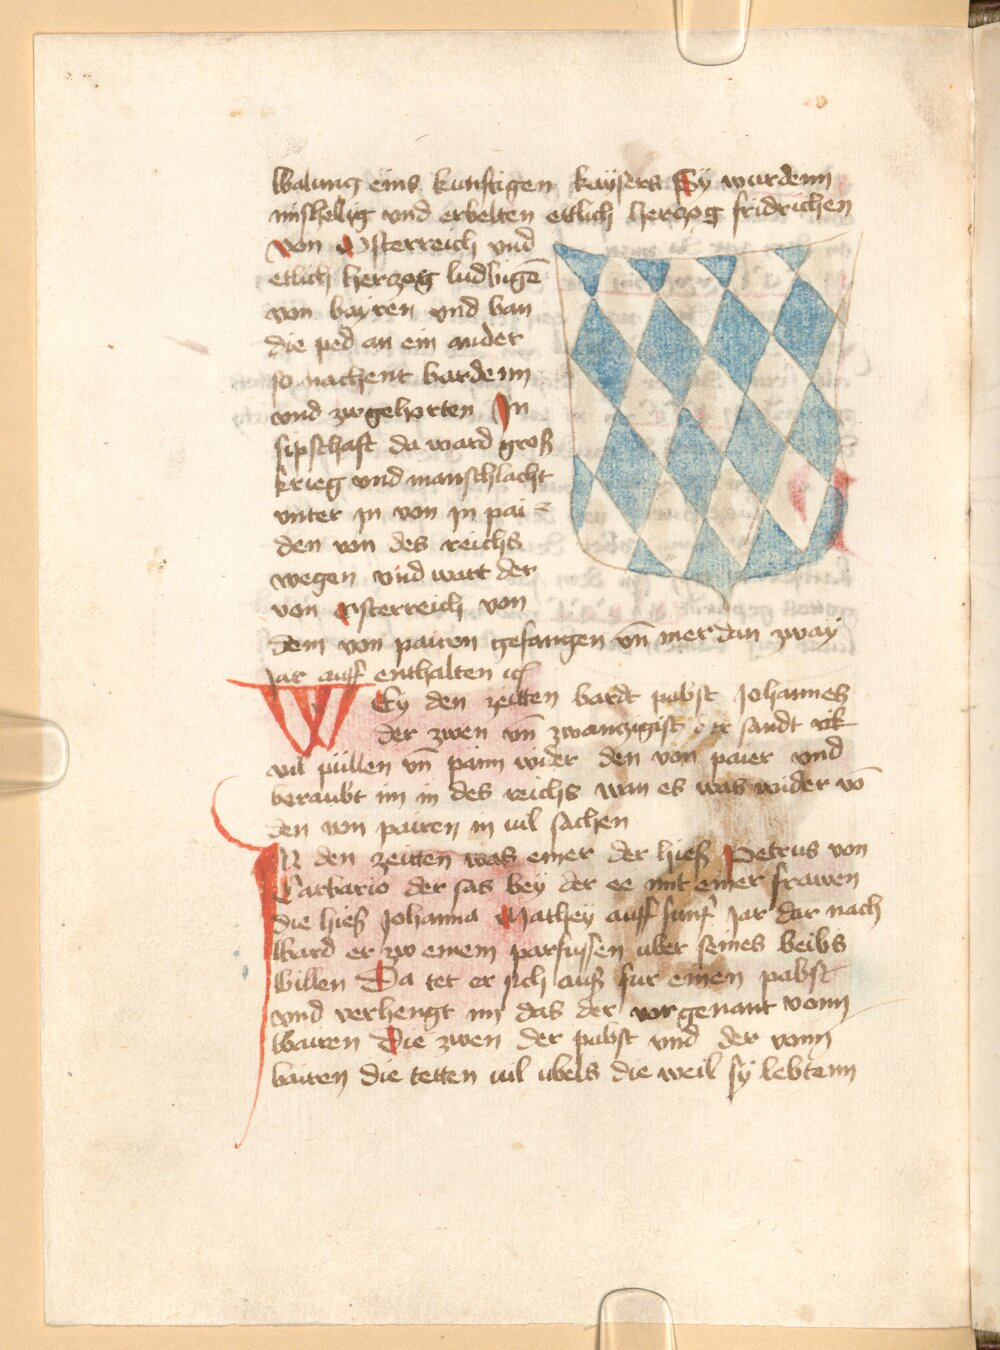 walung eins kunftigen kaysers Sy wurdenn
mishellig vnd erbelten ettlich herczog fridrichen
von Osterreich vnd
etlich herzog ludbigē
von bayren vnd ban
die ped an ein ander
so nachent bardenn
vnd zwgehorten In
sipschafft da ward groß
krieg vnd manschlacht
vnter in von in pai
den von des reichs
wegen vnd wart der
von Osterreich von
dem von pairen gefangen vn̄ mer dan zway
jar auff enthalten
WEy den zeitten bardt pabst Johannes
der zwen vn̄ zwanczigist der sandt
vil püllen vn̄ pänn wider den von paier vnd
beraubt im in des reichs wan es was wider vō
den von pairen in vil sachen
IN den zeitten was einer der hieß Petrus von
Carbario der sas bey der ee mit einer frawen
die hieß Johanna Mathey auff funf Jar dar nach
ward er zw einem parfussen uber seines beibs
willen Da tet er sich auß fur einen pabst
vnd verhengt im das der vorgenant vonn
Bairen Die zwen der pabst vnd der vonn
bairen die tetten vil ubels die weil sy lebtenn